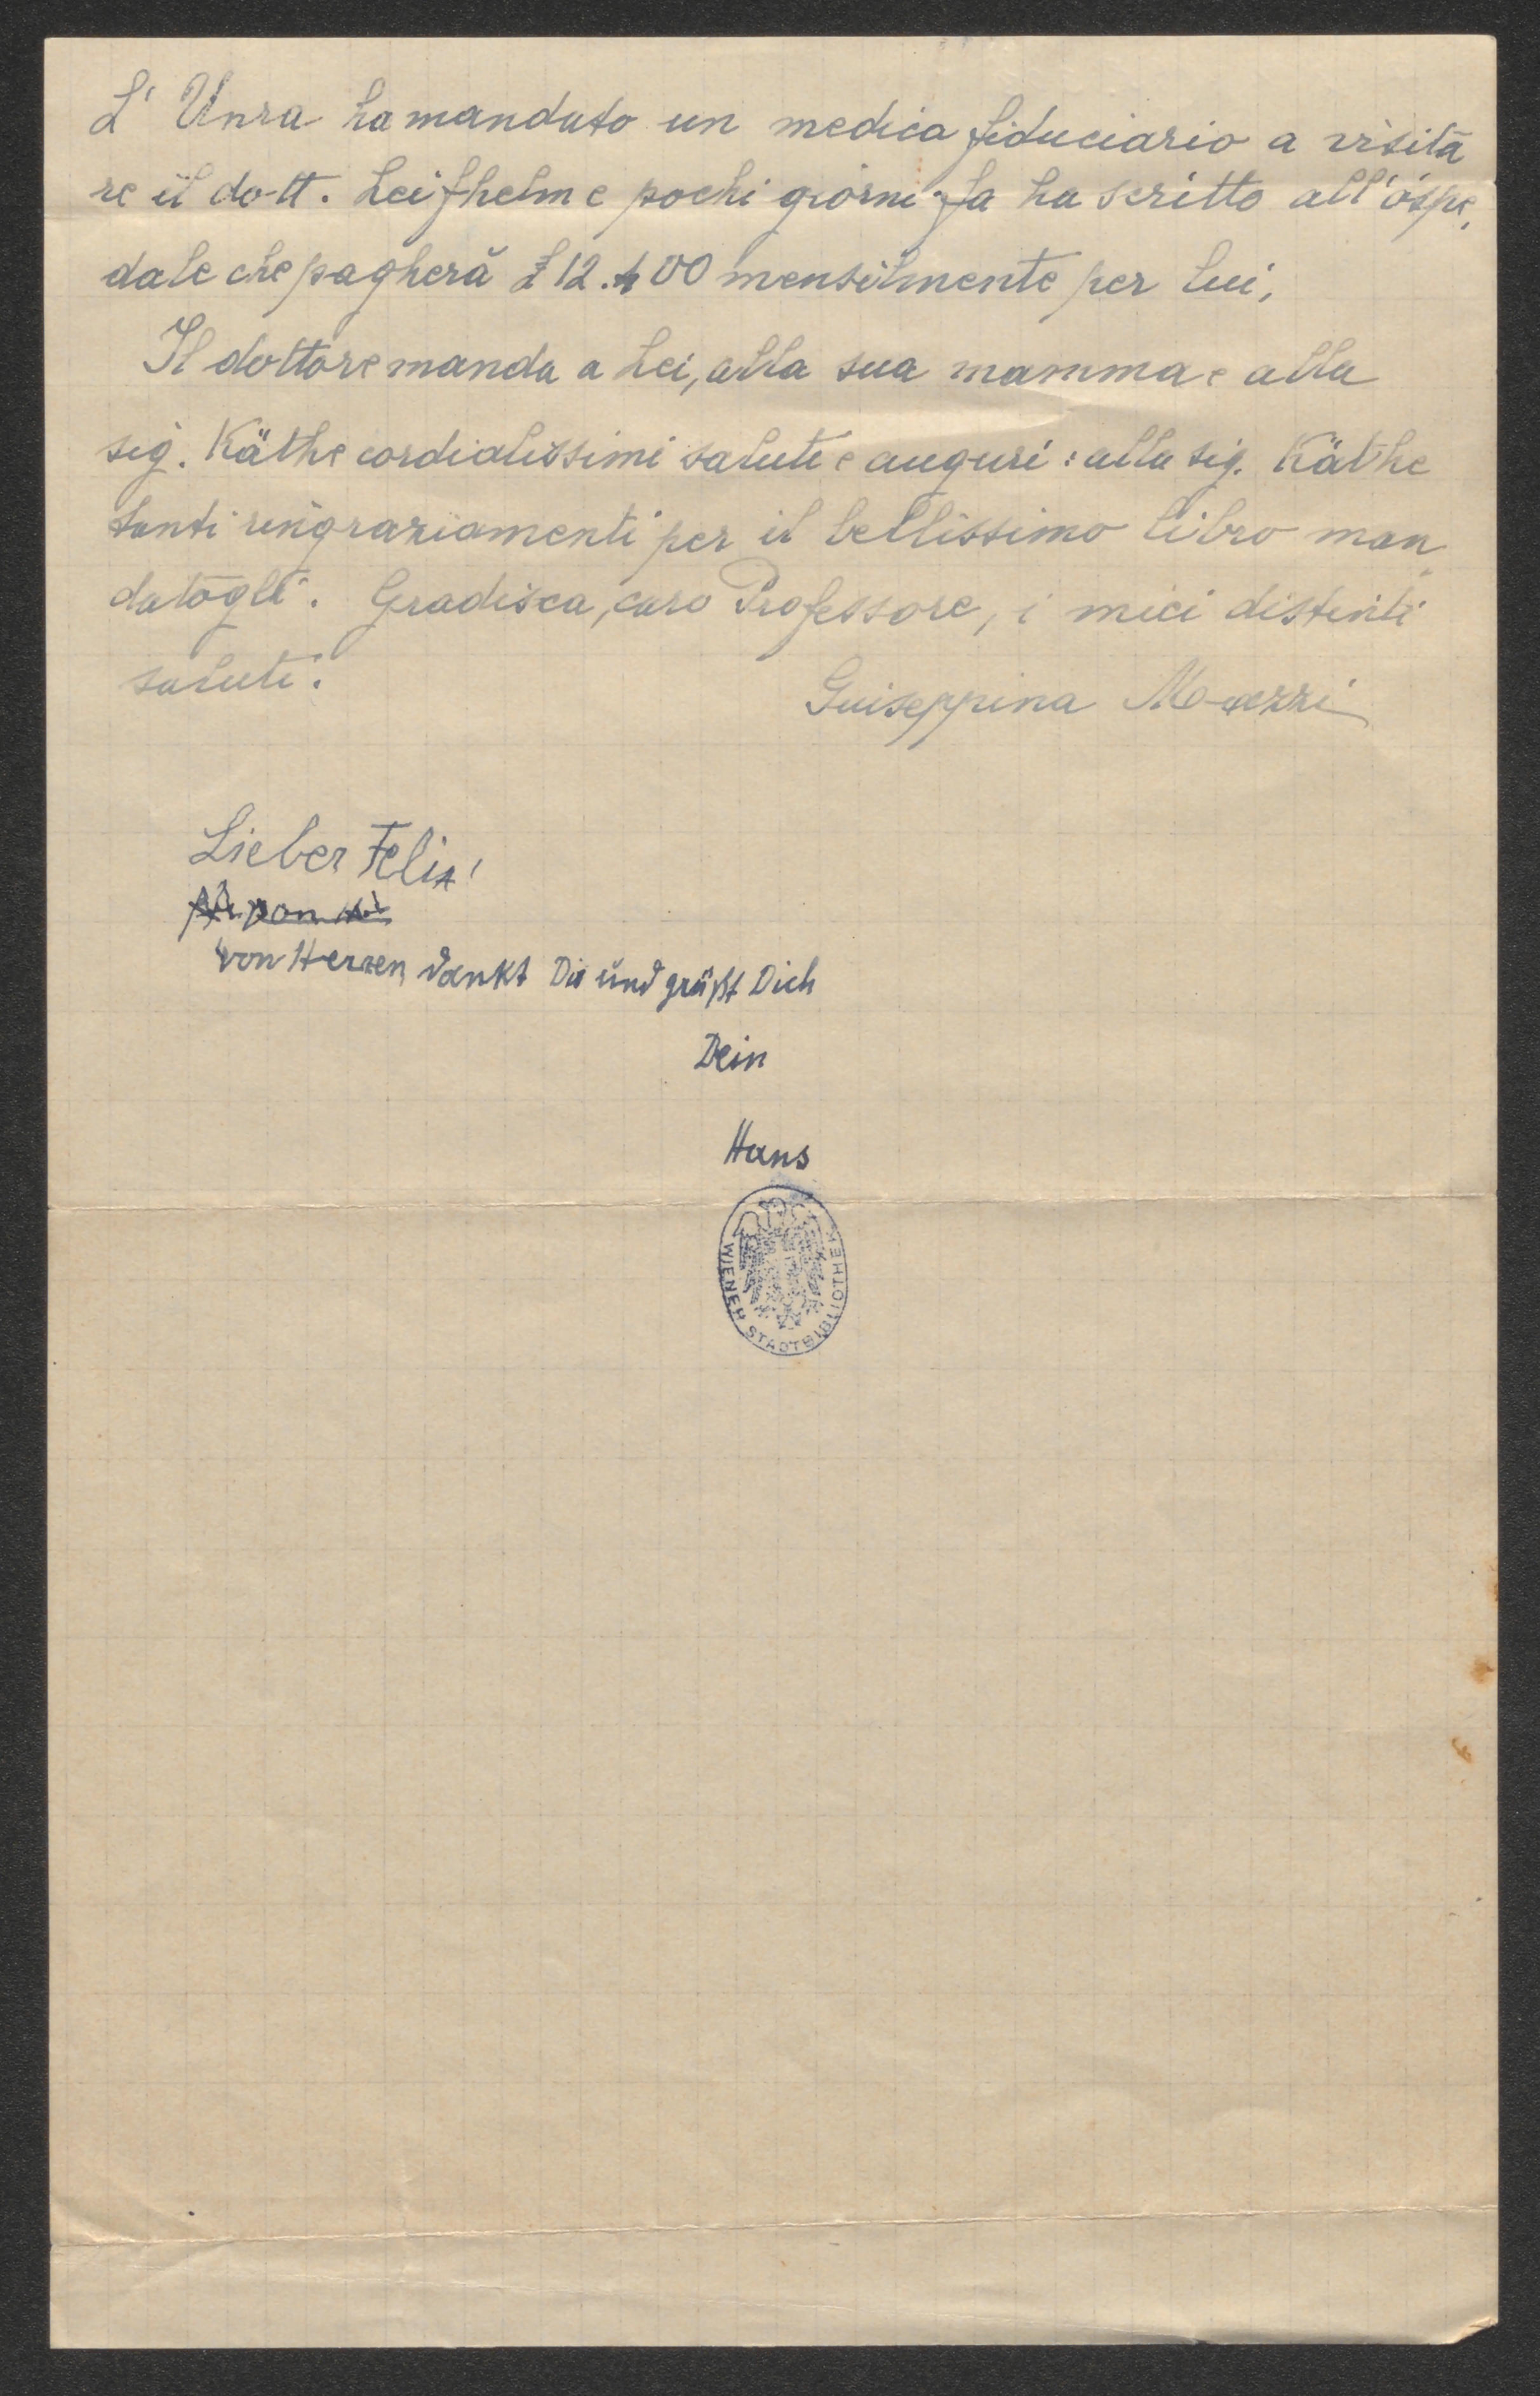 L' Unra ha mandato un medico fiduciario a visita
re il dott. Leifhelm e pochi giorni fa ha scritto all'ospe
dale che pagherà £ 12.400 mensilmente per lui,
Il dottore manda a Lei, alla sua mamma e alla
sig. Käthe cordialissimi saluti e auguri: alla sig. Käthe
tanti ringraziamenti per il bellissimo libro man
datogli. Gradisca, caro Professore, i miei distinti
saluti.
Guiseppina
Lieber Felix!
von Herzen dankt Dir und grüßt Dich
Dein
Hans
WIENER STADTBIBLIOTHEK